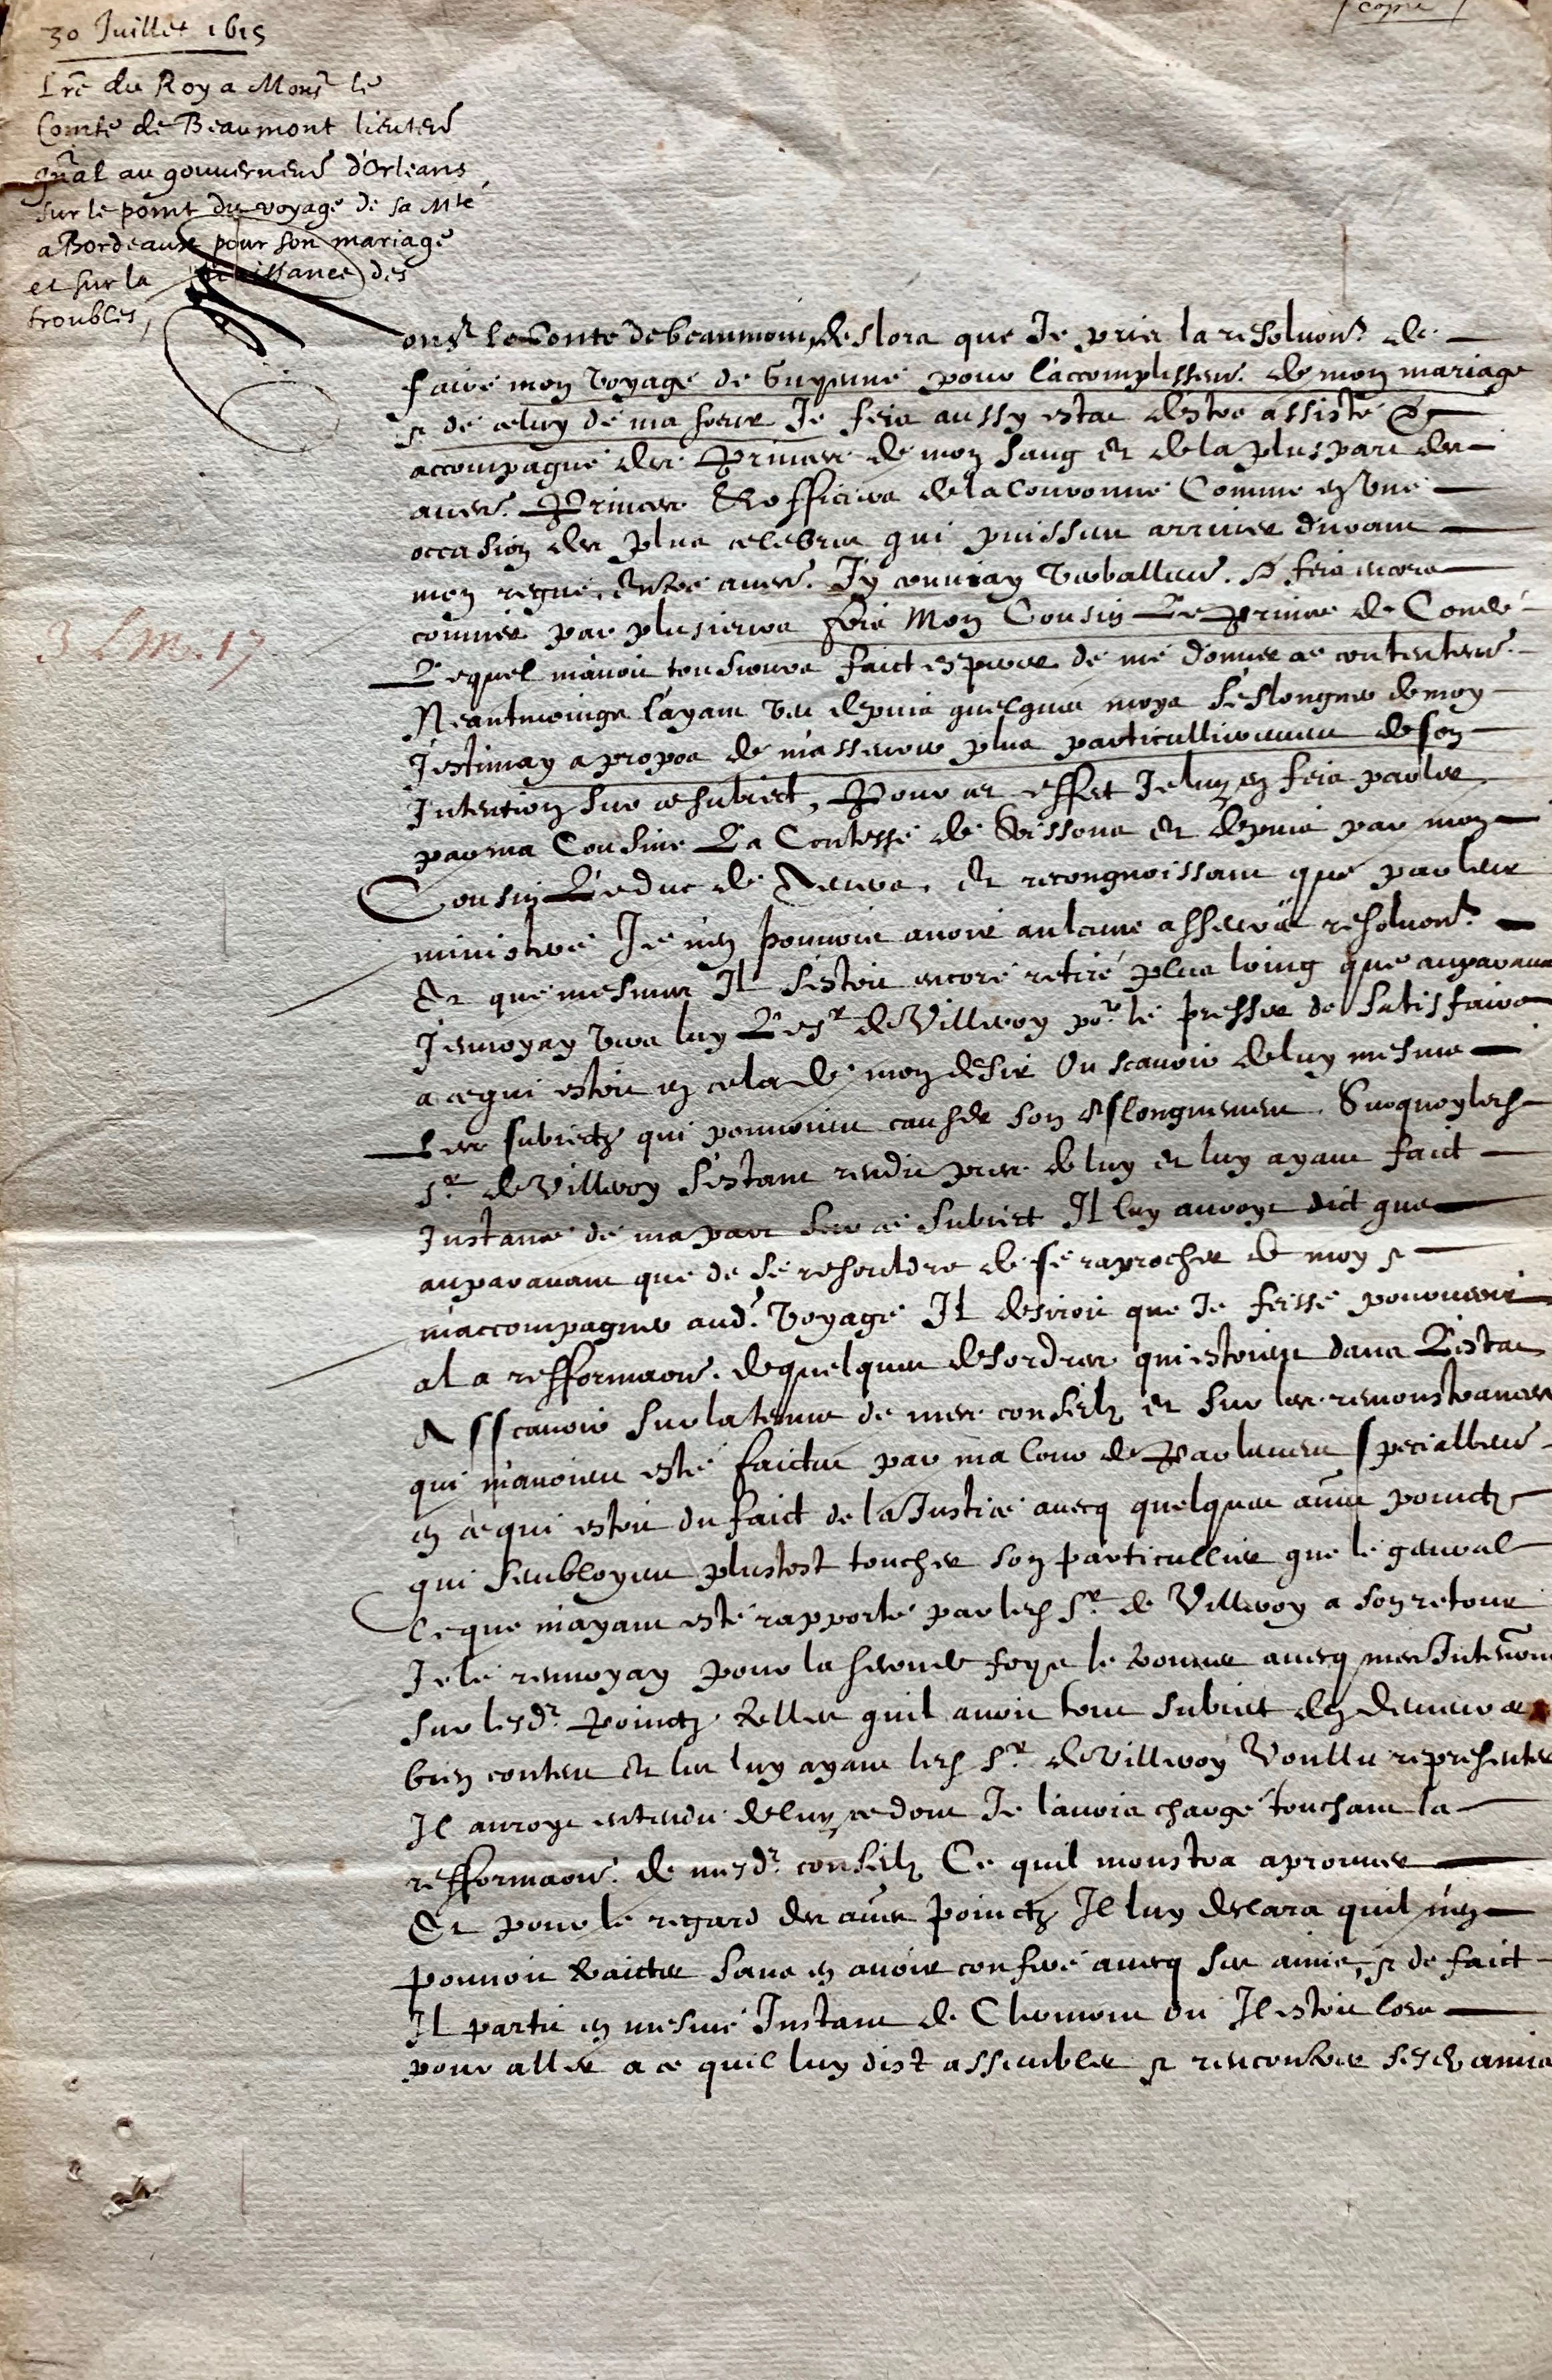 copie
30 Juillet 1615
Lre du Roy a Monsr le
Comte de Beaumont lieuten
gnal au gouvernemt d'Orleans
sur le point du voyage de sa Mté
a Bordeaux pour son mariage
et sur la naissance des
troubles,
3 L M. 17
Monsr le Conte de beaumont, des lors que Je pris la resoluon de
faire mon voyage de Guyenne pour l'accomplissemt de mon mariage
& de celuy de ma soeur Je feis aussy estat destre assisté &
accompagné des Princes de mon sang et de la pluspart des
aues Princes & officiers de la Couronne Comme en une
occasion des plus celebres qui puissent arriver durant
mon regne, Entre aues J'y conviay verballemt & feis encore
convier par plusieurs fois Mon Cousin Le Prince de Condé
Lequel m'avoit tousjours faict esperer de me donner ce contentemt
Neantmoings l'ayant veu depuis quelques moys s'eslongner de moy
J'estimay a propos de m'asseurer plus particullierement de son
Intention sur ce subiect, Pour cet effet Je luy en feis parler
par ma Cousine La Contesse de Soissons et depuis par mon
Cousin Le duc de Nevers, Et recongnoissant que par leur
ministere Je n'en pouvois avoir aulcune asseurée resoluon
Et que mesmes Il s'estoit encore retiré plus loing que auparavant
J'envoyay vers luy Le Sr de Villeroy pr le presser de satisfaire
a ce qui estoit en cela de mon desir Ou scavoir de luy mesme
Les subiectz qui pouvoient causer son eslongnement. Surquoy led
Sr de Villeroy s'estant rendu pres de luy et luy ayant faict
Instance de ma part sur ce subiect Il luy auroyt dict que
auparavant que de se resouldre de se raprocher de moy &
m'accompagner aud. voyage Il desiroit que Je feisse pourvoir
a la refformaon de quelques desordres qui estoient dans L'estat
Asscavoir sur la tenue de mes conseilz et sur les remonstrances
qui m'avoient esté faictes par ma Cour de Parlement speciallemt
en ce qui estoit du faict de la Justice avecq quelques aues poinctz
qui sembloyent plustost toucher son particullier que le general
Ce que m'ayant esté rapporté par led Sr de Villeroy a son retour
Je le renvoyay pour la seconde foys le trouver avecq mes Intenons
sur lesd. poinctz Telles quil avoit tout subiect d'en demeurer
bien content et les luy ayant led Sr de Villeroy voullu representer
Il auroyt entendu de luy ce dont Je l'avois chargé touchant la
refformaon de mesd. conseilz Ce quil monstra aprouver
Et pour le regard des aues poinctz Il luy declara quil n'en
pouvoit traicter sans en avoir conferé avecq ses amis, & de faict
Il partit en mesme Instant de Clermont ou Il estoit lors
pour aller a ce quil luy dist assembler & rencontrer sesd. amis